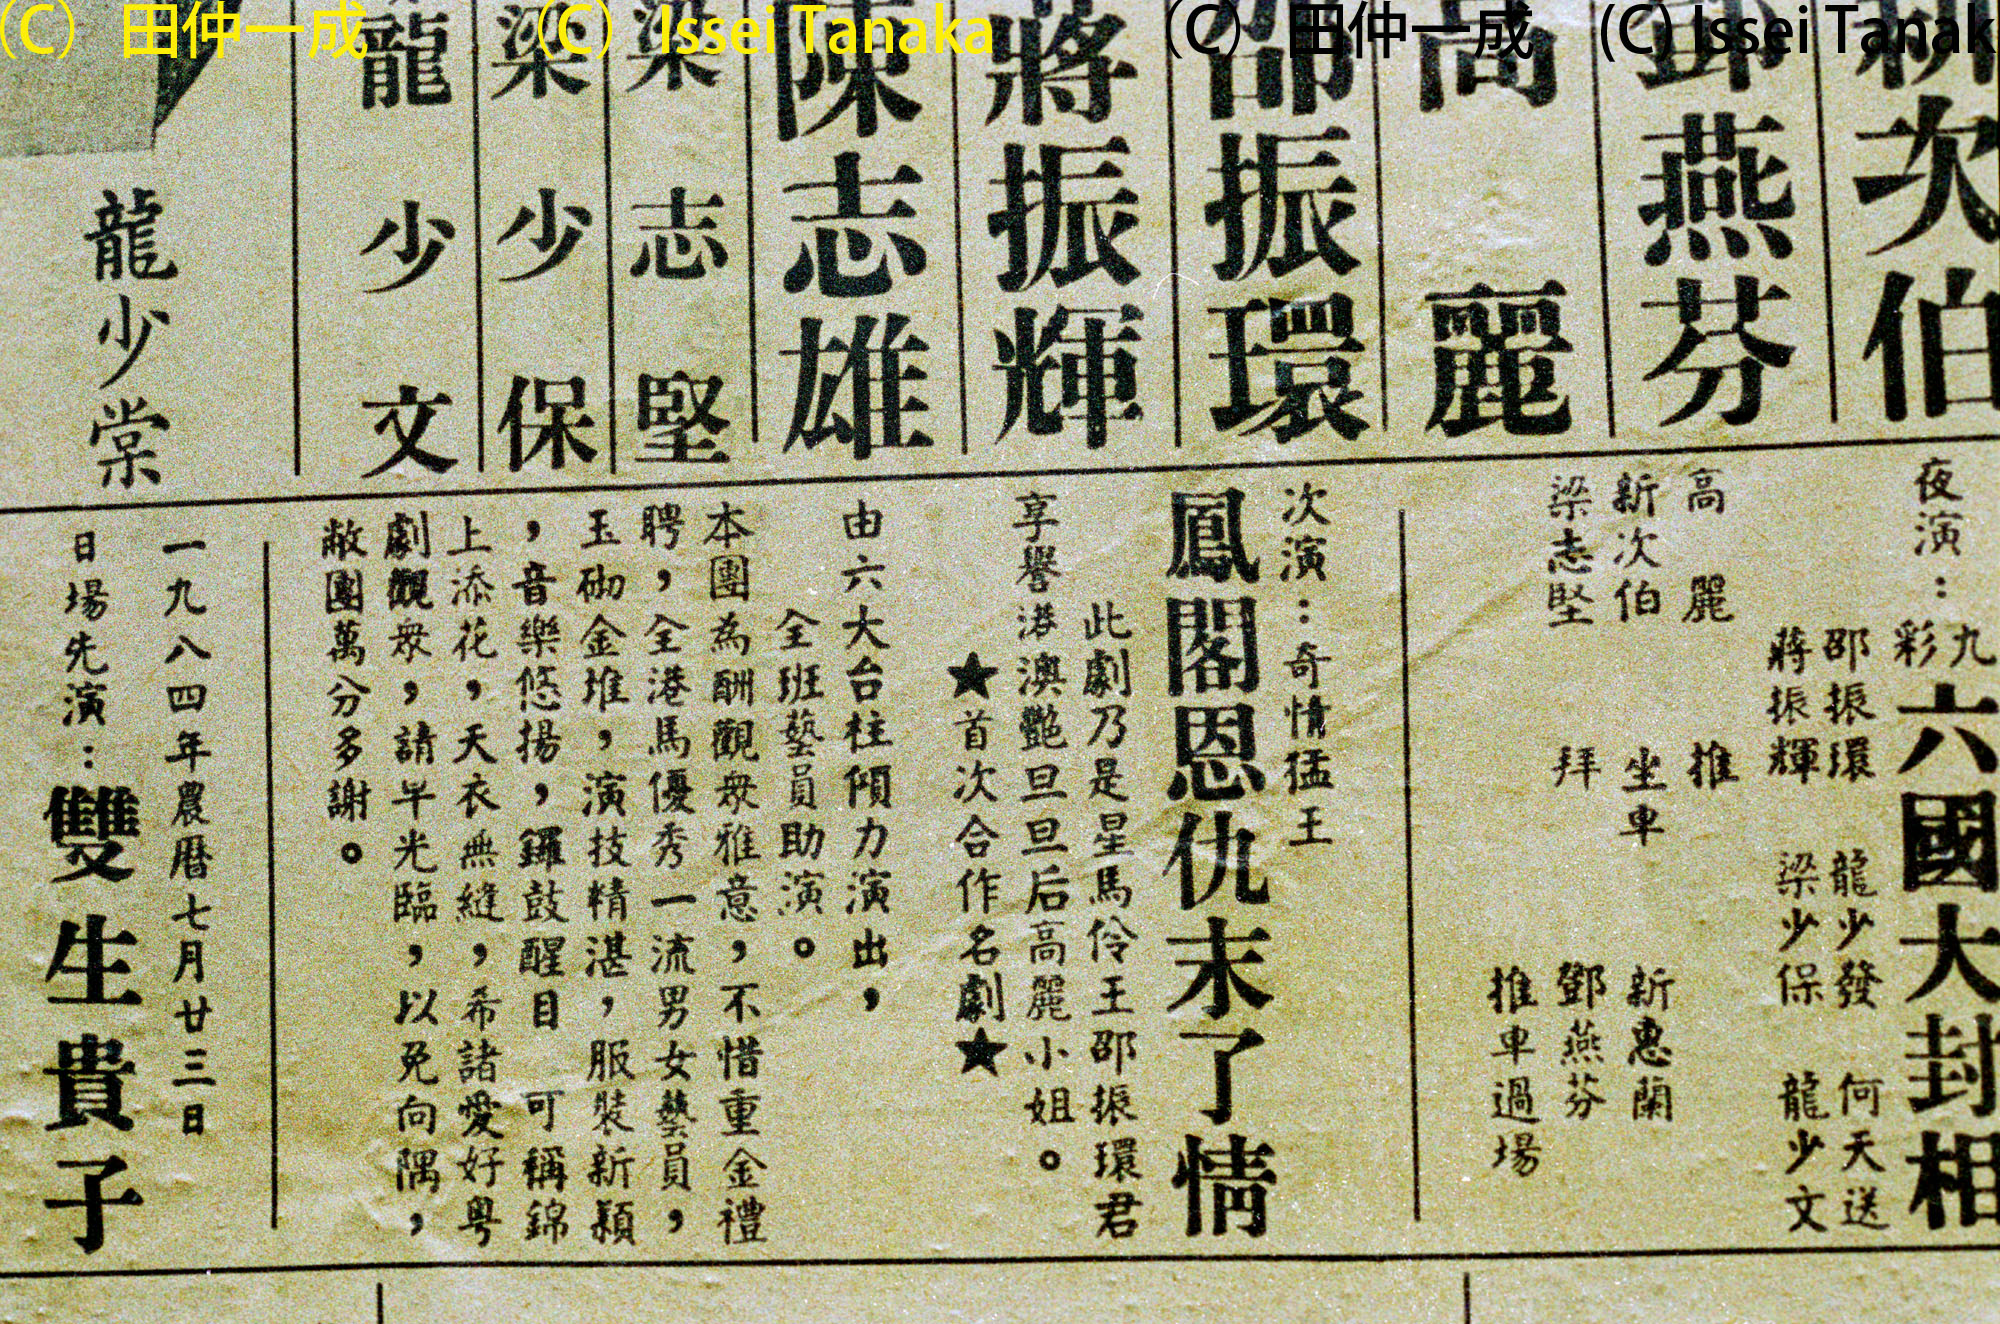 (C) 田仲一成 (C) Issei Tanaka (C) 田仲一成 (C) Issei Tanak
新次伯
鄧燕芬
高麗
邵振環
蔣振輝
陳志雄
梁志堅
梁少保
龍少文
龍少棠
夜演：九彩六國大封相
邵振環 龍少發 何天送
蔣振輝 梁少保 龍少文
高麗 推
新次伯 坐車 新惠蘭
梁志堅 拜 鄧燕芬
推車過場
次演：奇情猛王
鳳閣恩仇未了情
此劇乃是星馬伶王邵振環君
享譽港澳艷旦旦后高麗小姐。
★首次合作名劇★
由六大台柱傾力演出，
全班藝員助演。
本團為酬觀衆雅意，不惜重金禮
聘，全港馬優秀一流男女藝員，
玉砌金堆，演技精湛，服裝新穎
，音樂悠揚，鑼鼓醒目 可稱錦
上添花，天衣無縫，希諸愛好粵
劇觀衆，請早光臨，以免向隅，
敝團萬分多謝。
一九八四年農曆七月廿三日
日場先演：雙生貴子